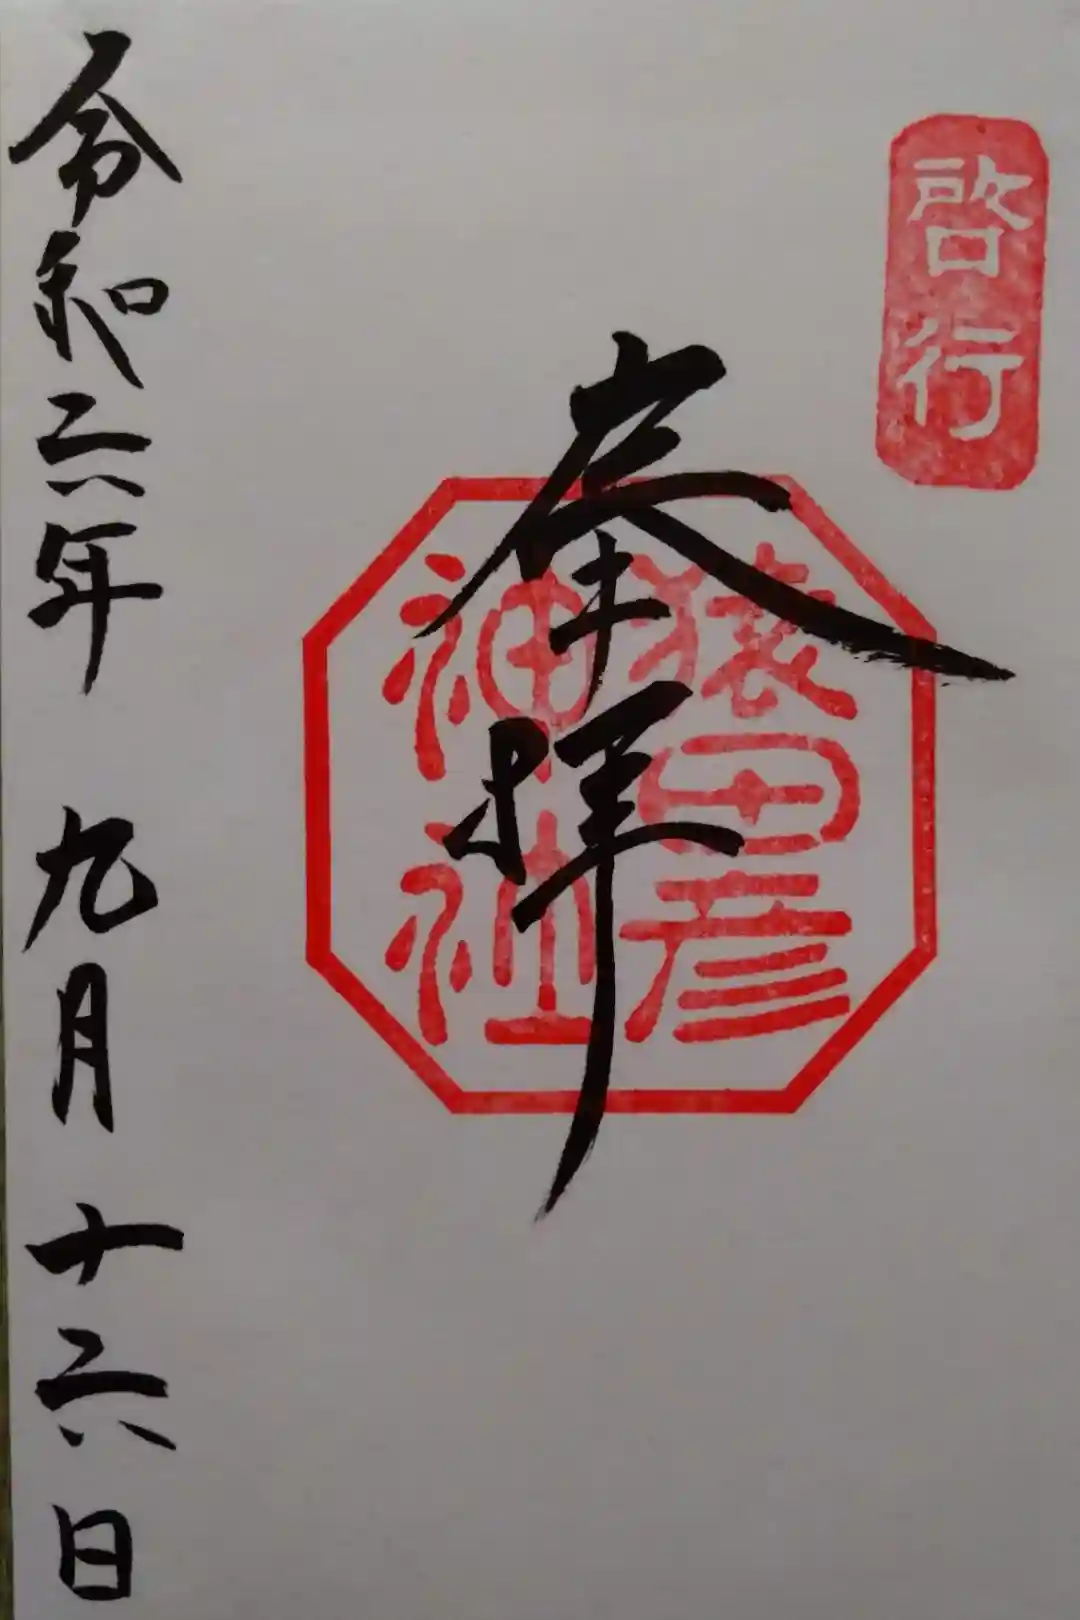 啓行
奉拝
猿田彦
神社
令和六年 九月 十六日